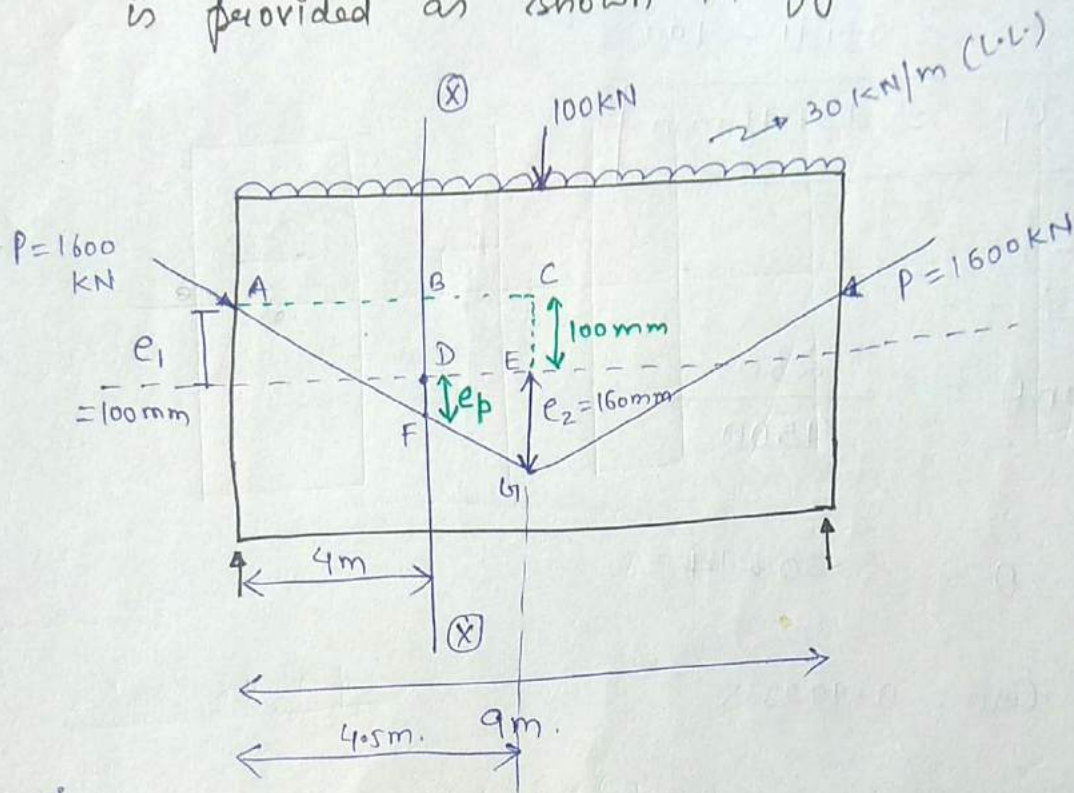 is provided as shown
Ⓧ
100KN
30 KN/m (L.L.)
P=1600
KN
A
B
C
P=1600KN
e₁
100mm
D
E
=100mm
ep
e₂=160mm
F
G
4m
Ⓧ
9m.
4.5m.